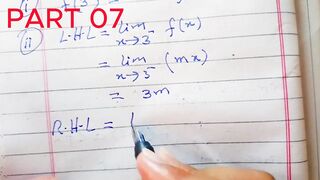 PART 07
(i) f(3)
(ii) L.H.L = lim x→3⁻ f(x)
= lim x→3⁻ (mx)
= 3m
R.H.L =